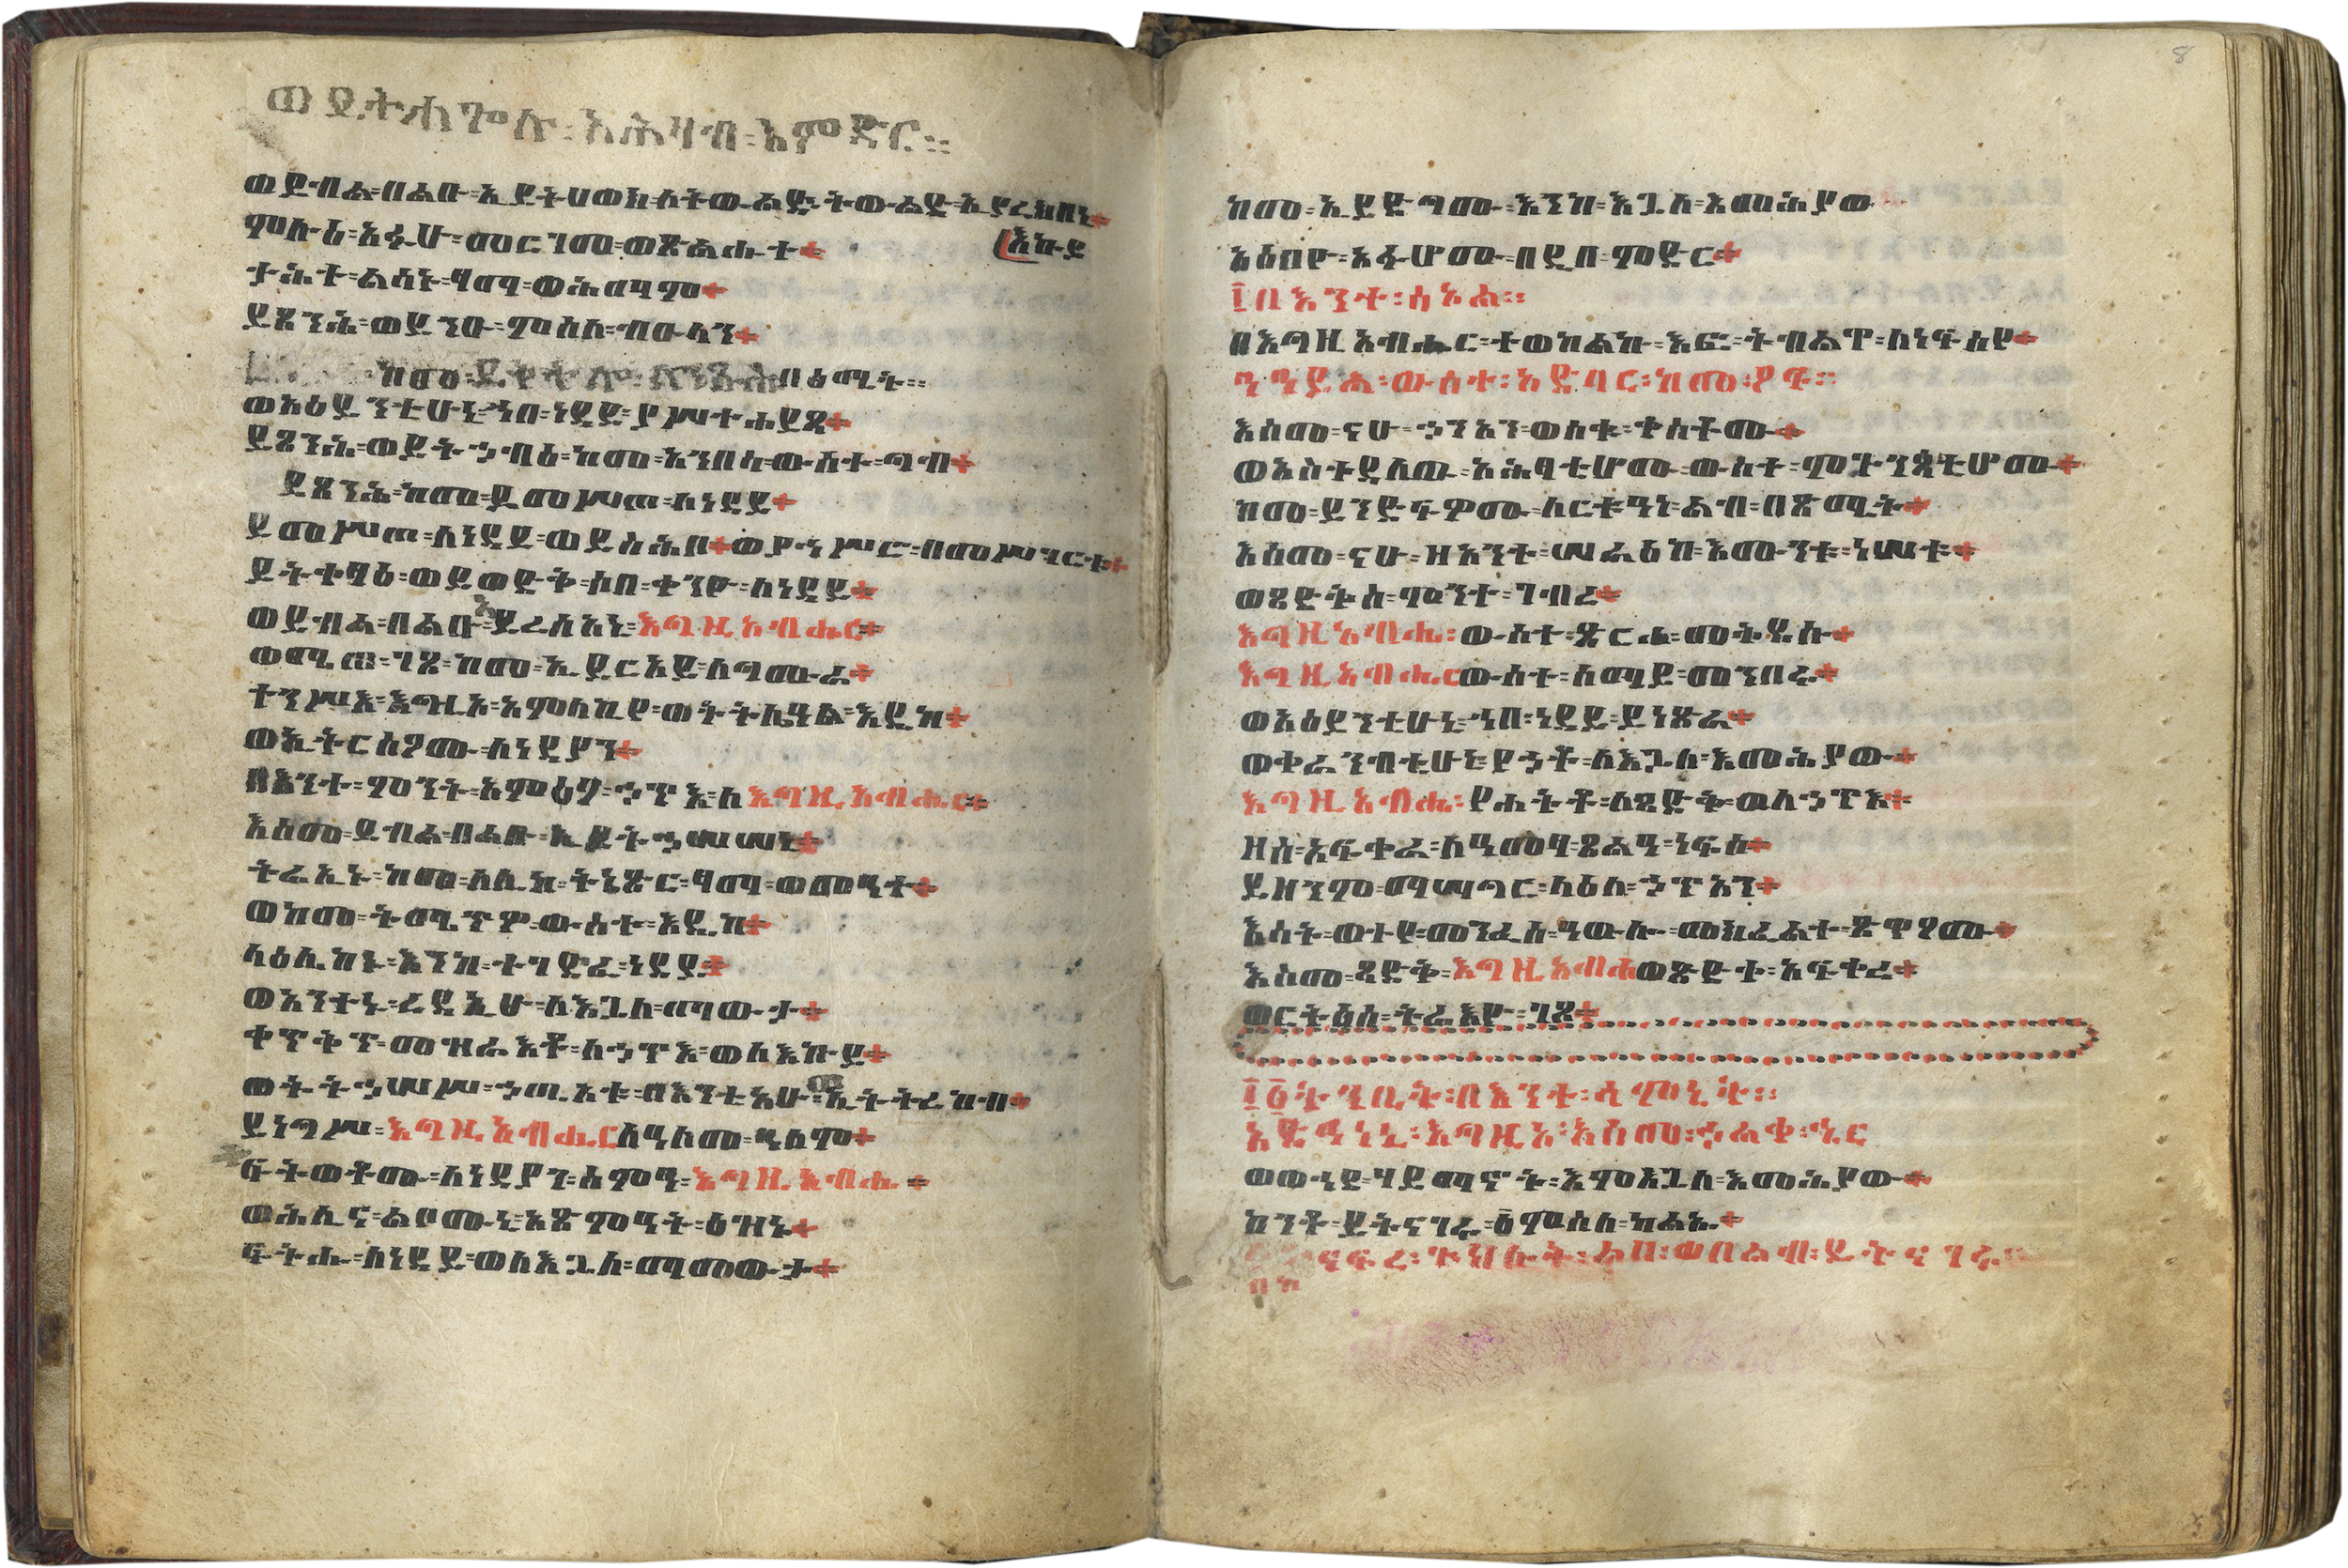 ወይትሐጐሉ፡አሕዛብ፡እምድር።
ወይብል፡በልቡ፡ኢይትሀወክ፡ለትውልድ፡ትውልድ፡ኢይረክበኒ
እኩይ
ምሉዕ፡አፉሁ፡መርገመ፡ወጽልሑተ
ታሕተ፡ልሳኑ፡ፃማ፡ወሕማም
ይጸንሕ፡ወይንዑ፡ምስለ፡ብዑላን
ከመ፡ይቅትሎ፡ለንጹሕ፡በፅሚት።
ወአዕይንቲሁኒ፡ኀበ፡ነዳይ፡ያሥተሐይጻ
ይጸንሕ፡ወይትኃብዕ፡ከመ፡አንበሳ፡ውስተ፡ግብ
ይጸንሕ፡ከመ፡ይመሥጦ፡ለነዳይ
ይመሥጦ፡ለነዳይ፡ወይስሕቦ ወያኀሥሮ፡በመሥገርቱ
ይትቀፃዕ፡ወይወድቅ፡ሶበ፡ቀንዮ፡ለነዳይ
ወይብል፡በልቡ፡ኢይረስአኒ፡እግዚአብሔር፡
ወሜጠ፡ገጾ፡ከመ፡ኢይርአይ፡ለግሙራ
ተንሥእ፡እግዚኦ፡አምላኪየ፡ወትትሌዓል፡እዴከ
ወኢትርስዖሙ፡ለነዳያን
በእንተ፡ምንት፡አምዕዖ፡ኃጥእ፡ለእግዚአብሔር፡
እስመ፡ይብል፡በልቡ፡ኢይትኃሠሠኒ
ትሬኢኑ፡ከመ፡ለሊከ፡ትኔጽር፡ፃማ፡ወመዓተ
ወከመ፡ትሜጥዎ፡ውስተ፡እዴከ
ላዕሌከኑ፡እንከ፡ተገድፈ፡ነዳይ
ወአንተኑ፡ረዳኢሁ፡ለእጓለ፡ማውታ
ቀጥቅጥ፡መዝራእቶ፡ለኃጥእ፡ወለእኩይ
ወትትኃሠሥ፡ኃጢአቱ፡በእንቲአሁ፡ወኢትትረከብ
ይነግሥ፡እግዚአብሔር ለዓለመ፡ዓለም
ፍትወቶሙ፡ለነዳያን፡ሰምዓ፡እግዚአብሔ፡
ወሕሊና፡ልቦሙኒ፡አጽምዓት፡ዕዝኑ
ፍትሐ፡ለነዳይ፡ወለእጓለ፡ማመውታ
ከመ፡ኢይድግሙ፡እንከ፡እጓለ፡እመሕያው
አዕብዮ፡አፉሆሙ፡በዲበ፡ምድር
፲በእንተ፡ሰኦል።
በእግዚአብሔር፡ተወከልኩ፡እፎ፡ትብልዋ፡ለነፍስየ
ተዓይል፡ውስተ፡አድባር፡ከመ፡ዖፍ።
እስመ፡ናሁ፡ኃጥአን፡ወሰቁ፡ቀስቶሙ
ወአስተዳለው፡አሕፃቲሆሙ፡ውስተ፡ምጕንጳቲሆሙ
ከመ፡ይንድፍዎሙ፡ለርቱዓነ፡ልብ፡በጽሚት
እስመ፡ናሁ፡ዘአንተ፡ሠራዕከ፡እሙንቱ፡ነሠቱ
ወጻድቅሰ፡ምንተ፡ገብረ
እግዚአብሔ፡ውስተ፡ጽርሐ፡መቅደሱ
እግዚአብሔር ውስተ፡ሰማይ፡መንበሩ
ወአዕይንቲሁኒ፡ኀበ፡ነዳይ፡ይነጽራ
ወቀራንብቲሁኒ፡የኃቶ፡ለእጓለ፡እመሕያው
እግዚአብሔ፡የሐትቶ፡ለጻድቅ፡ወለኃጥእ
ዘሰ፡አፍቀራ፡ለዓመፃ፡ጸልዓ፡ነፍሶ
ይዘንም፡ማሠግር፡ላዕለ፡ኃጥአን
እሳት፡ወተይ፡መንፈሰ፡ዓውሎ፡መክፈልተ፡ጽዋዖሙ
እስመ፡ጻድቅ፡እግዚአብሔ ወጽድቀ፡አፍቀረ
ወርትዕሰ፡ትሬእዮ፡ገጹ
፲፩ትንቢት፡በእንተ፡ሳምኒት።
አድኅነኒ፡እግዚኦ፡እስመ፡ኃልቀ፡ኄር
ወውኅደ፡ሃይማኖት፡እምእጓለ፡እመሕያው
ከንቶ፡ይትናገሩ፡፩ምስለ፡ካልኡ